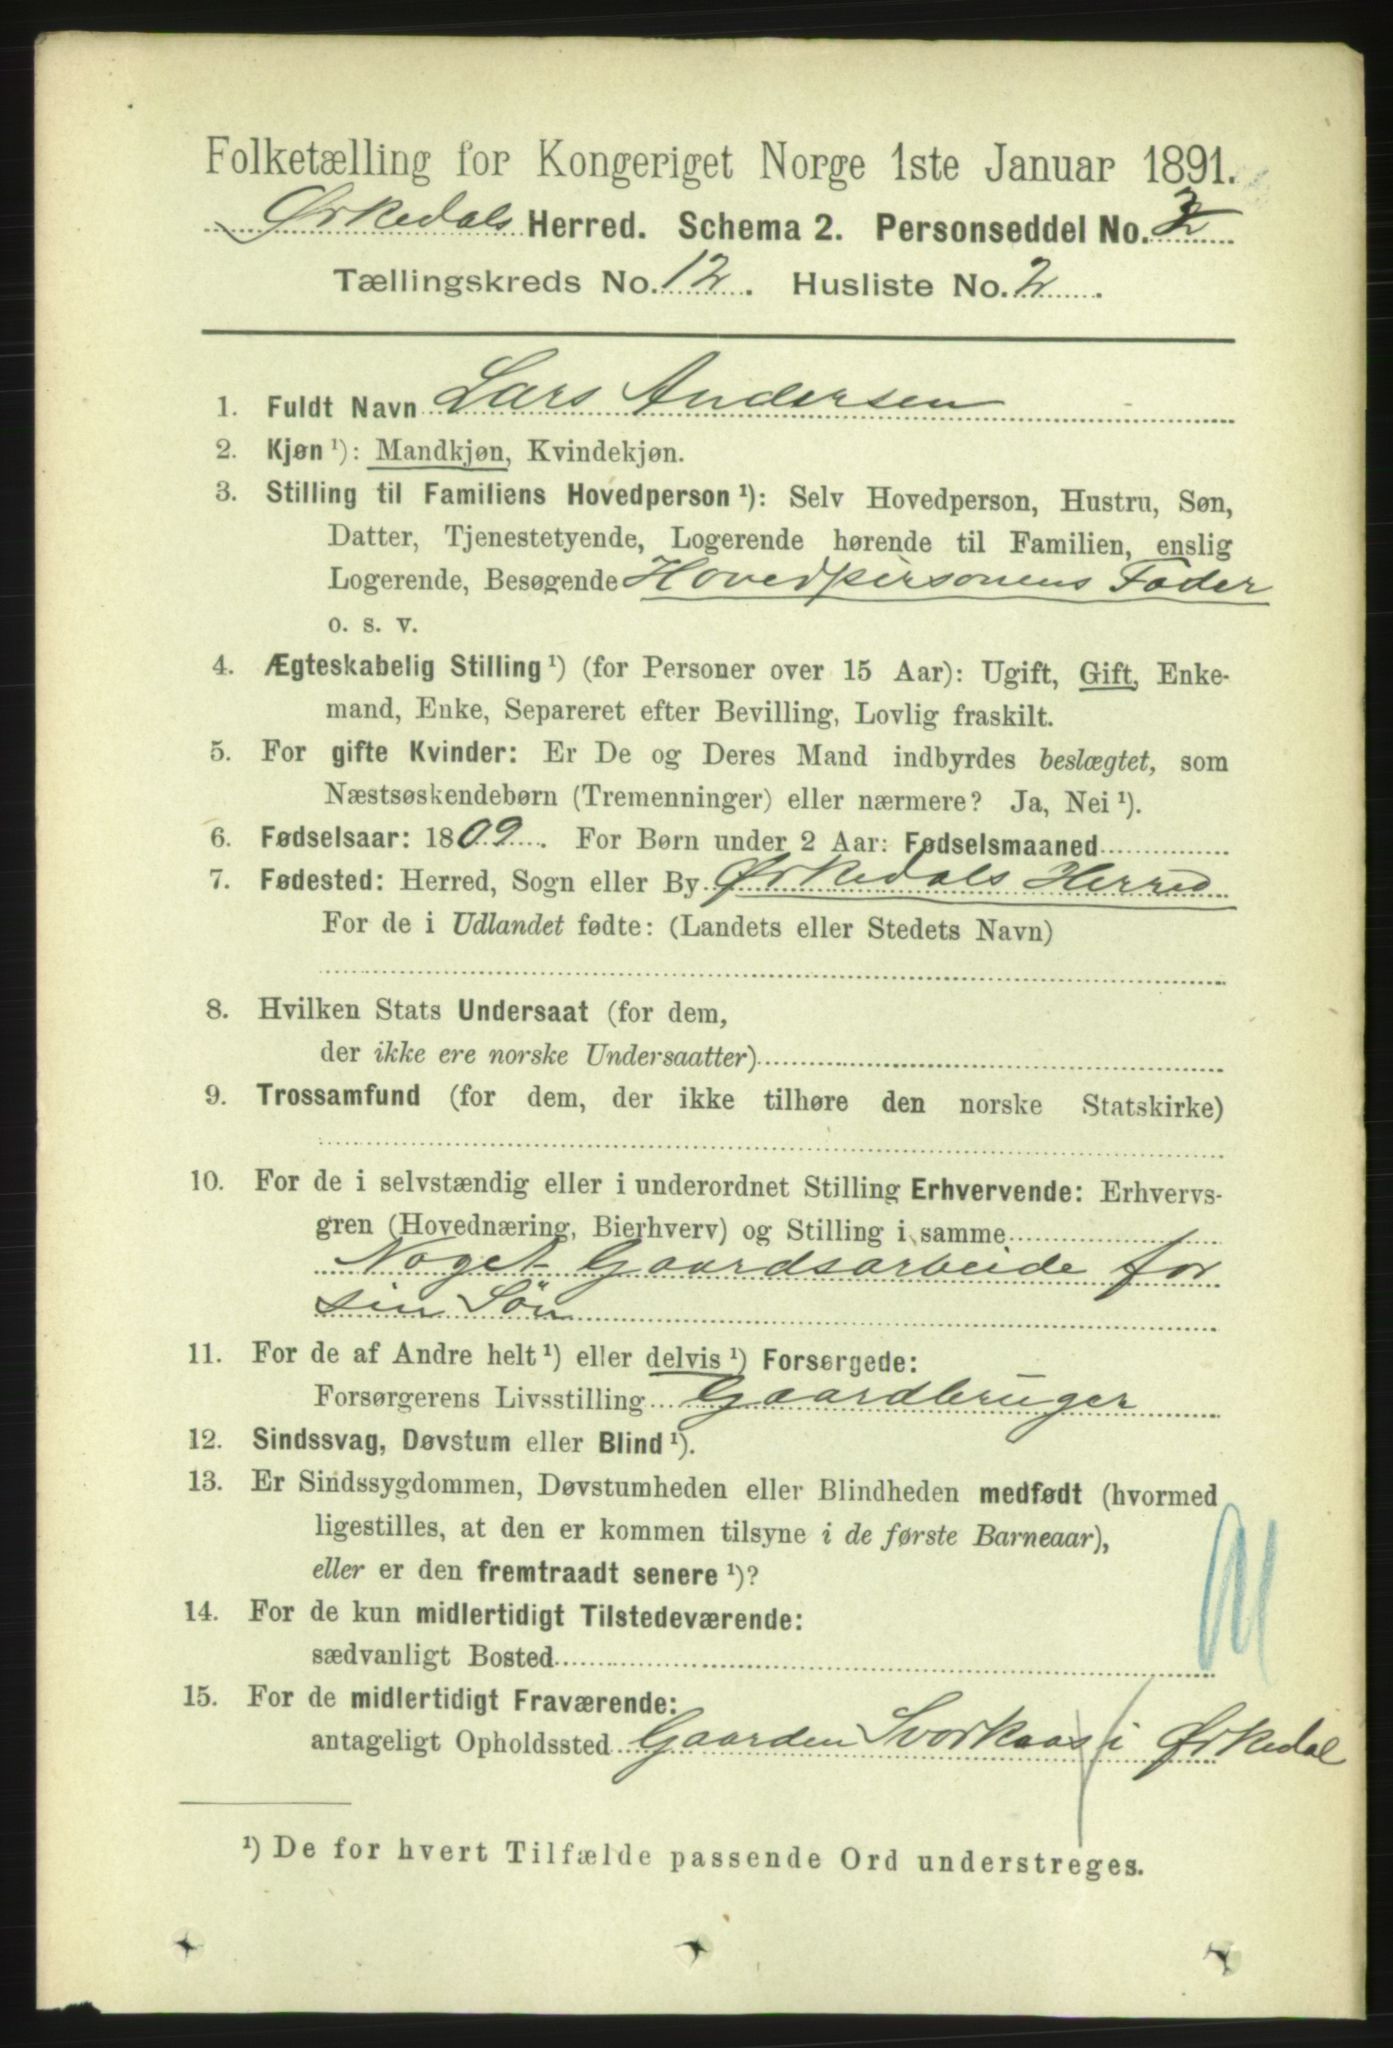 Folketælling for Kongeriget Norge 1ste Januar 1891.
Ørkedals Herred. Schema 2. Personseddel No.
Tællingskreds No. 12. Husliste No. 2.
1. Fuldt Navn Lars Andersen
2. Kjøn ¹): Mandkjøn, Kvindekjøn.
3. Stilling til Familiens Hovedperson ¹): Selv Hovedperson, Hustru, Søn,
Datter, Tjenestetyende, Logerende hørende til Familien, enslig
Logerende, Besøgende Hovedpersonens Fader
o. s. v.
4. Ægteskabelig Stilling ¹) (for Personer over 15 Aar): Ugift, Gift, Enke-
mand, Enke, Separeret efter Bevilling, Lovlig fraskilt.
5. For gifte Kvinder: Er De og Deres Mand indbyrdes beslægtet, som
Næstsøskendebørn (Tremenninger) eller nærmere? Ja, Nei ¹).
6. Fødselsaar: 1809. For Børn under 2 Aar: Fødselsmaaned
7. Fødested: Herred, Sogn eller By Ørkedals Herred
For de i Udlandet fødte: (Landets eller Stedets Navn)
8. Hvilken Stats Undersaat (for dem,
der ikke ere norske Undersaatter)
9. Trossamfund (for dem, der ikke tilhøre den norske Statskirke)
10. For de i selvstændig eller i underordnet Stilling Erhvervende: Erhvervs-
gren (Hovednæring, Bierhverv) og Stilling i samme
Noget Gaardsarbeide for
sin Søn
11. For de af Andre helt ¹) eller delvis ¹) Forsørgede:
Forsørgerens Livsstilling Gaardbruger
12. Sindssvag, Døvstum eller Blind ¹).
13. Er Sindssygdommen, Døvstumheden eller Blindheden medfødt (hvormed
ligestilles, at den er kommen tilsyne i de første Barneaar),
eller er den fremtraadt senere ¹)?
14. For de kun midlertidigt Tilstedeværende:
sædvanligt Bosted
15. For de midlertidigt Fraværende:
antageligt Opholdssted Gaarden Svorkaas i Ørkedal
¹) De for hvert Tilfælde passende Ord understreges.